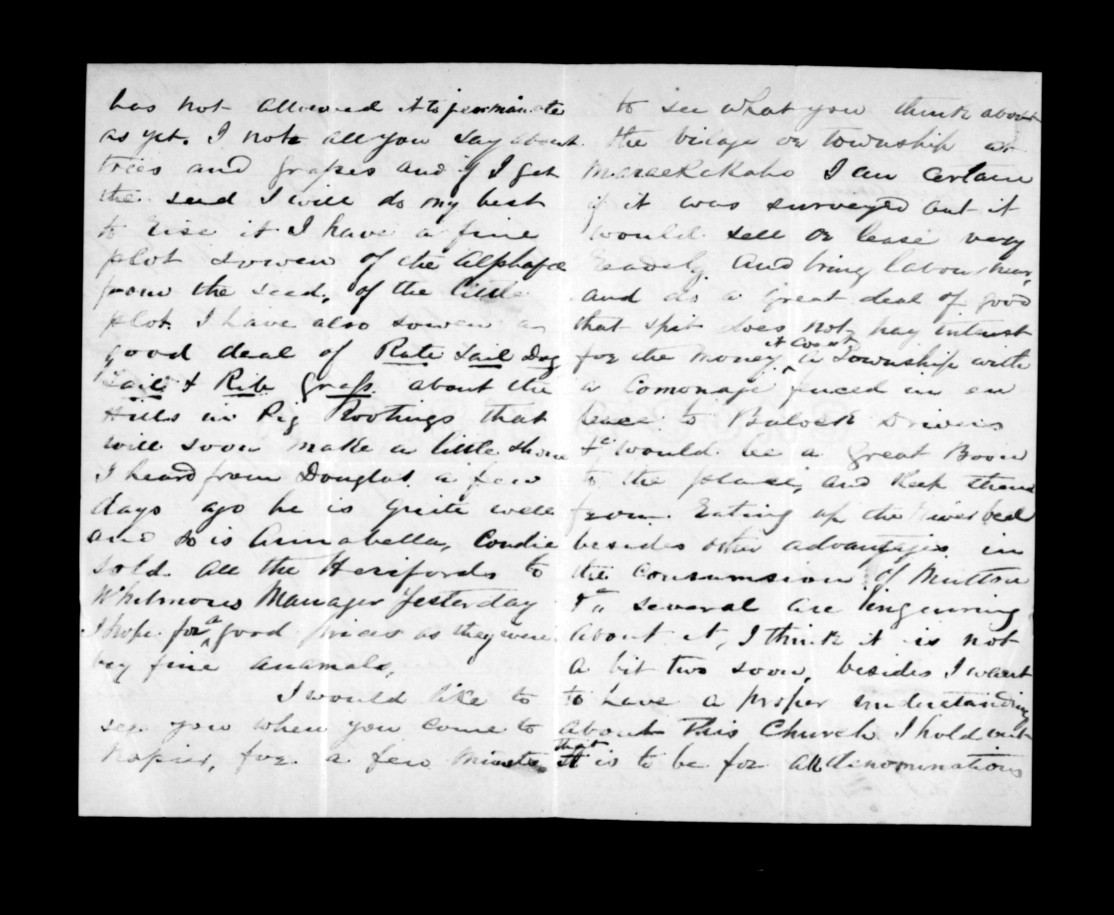 has not allowed it to jearminate
as yet. I note all you say about
trees and grasses and if I get
the seed I will do my best
to rise it I have a fine
plot sowen of the Alphafa
from the seed, of the little
plot. I have also sowen a
good deal of Rats tail Dog
tail & Rib grass about the
Hills in Pig Rootings that
will soon make a little show
I heard from Douglas a few
days ago he is quite well
and so is Annabella, Condie
sold all the Herefords to
Whitmores Manager Yesterday
I hope for a good prices as they were
very fine anamals,
I would like to
see you when you come to
Napier, for a few Minutes
to see what you think about
the vilage or township at
Maraekakaho I am certain
if it was surveyed out it
would sell or lease very
readely and bring labour here,
and do a great deal of good
that spit does not pay intrest
for the money it cost, a Township with
a Comonage fenced in on
lease to Bulock Drivers
&c would be a great Boon
to the place, and keep them
from Eating up the River bed
besides other advantages in
the Consumsion of Mutton
&c several are enquiring
about it, I think it is not
a bit two soon, besides I want
to have a proper understanding
about This Church. I hold out
that it is to be for all denominations